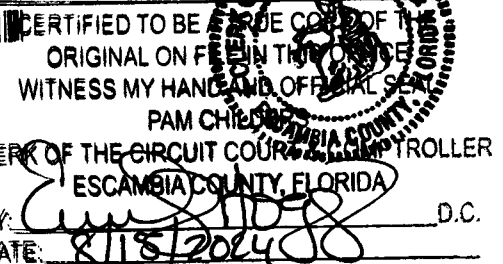 CERTIFIED TO BE A TRUE COPY OF THE
ORIGINAL ON FILE IN THIS OFFICE
WITNESS MY HAND AND OFFICIAL SEAL
PAM CHILDERS
ERK OF THE CIRCUIT COURT TROLLER
ESCAMBIA COUNTY, FLORIDA
Y: D.C.
ATE: 8/15/2024
ESCAMBIA COUNTY, FLORIDA